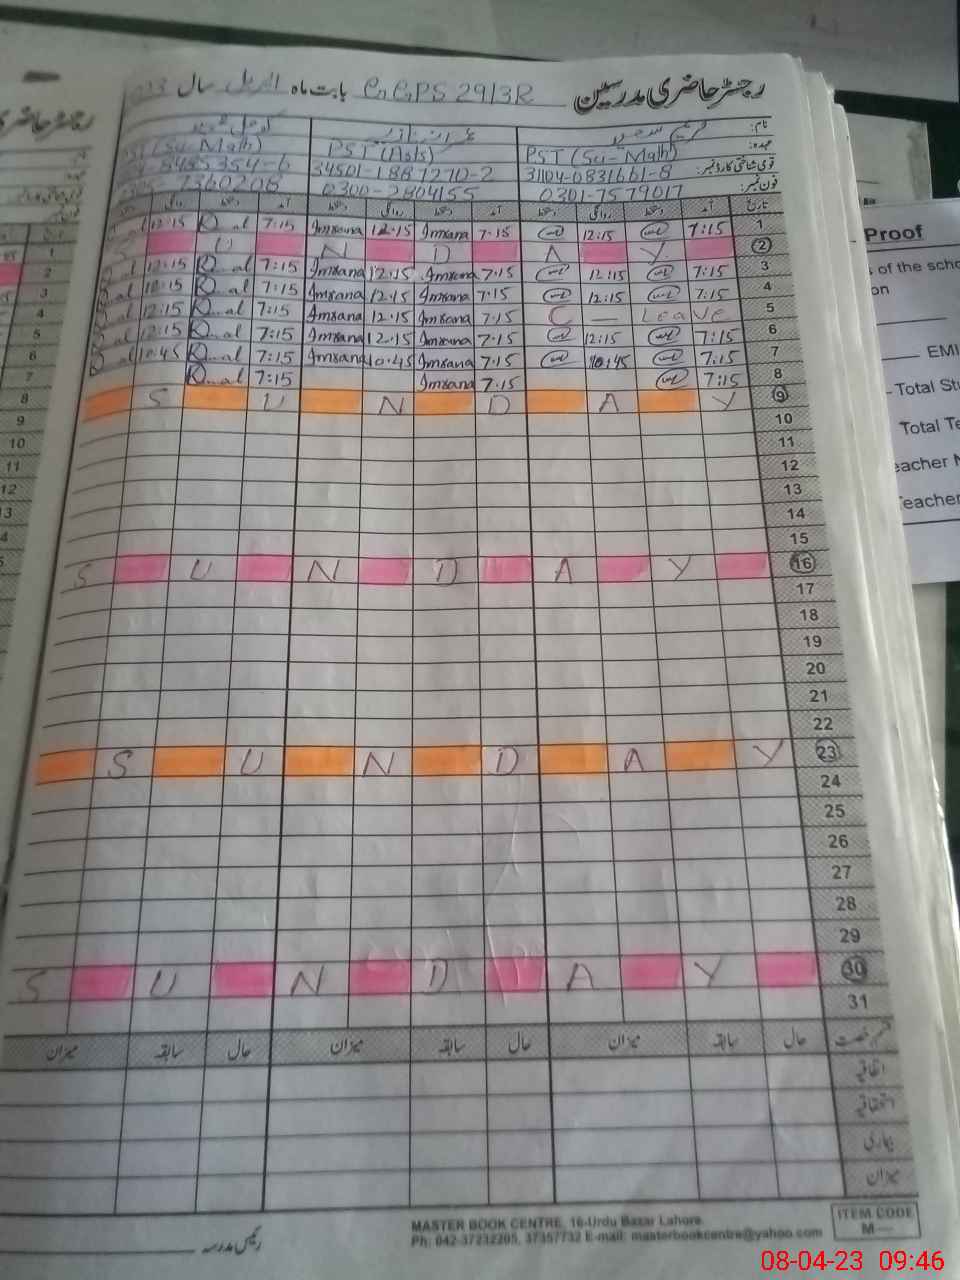 رجسٹر حاضری مدرسین GGPS 29/3R بابت ماہ اپریل سال
نام:
عہدہ: PST (Sci-Math) PST (Arts) PST (Sci-Math)
قومی شناختی کارڈ نمبر: 31104-0831661-8 34501-1887270-2
فون نمبر: 0301-7579017 0300-2804155 7360208
تاریخ آمد دستخط روانگی دستخط آمد دستخط روانگی دستخط آمد دستخط روانگی
1 7:15 12:15 7:15 Imrana 12:15 Imrana 7:15 12:15
2 S U N D A Y
3 7:15 12:15 7:15 Imrana 12:15 Imrana 7:15 12:15
4 7:15 12:15 7:15 Imrana 12:15 Imrana 7:15
5 Leave — C 7:15 Imrana 12:15 Imrana 7:15 12:15
6 7:15 12:15 7:15 Imrana 12:15 Imrana 7:15 12:15
7 7:15 10:45 7:15 Imrana 10:45 Imrana 7:15 10:45
8 7:15 7:15 Imrana 7:15
9 S U N D A Y
10
11
12
13
14
15
16 S U N D A Y
17
18
19
20
21
22
23 S U N D A Y
24
25
26
27
28
29
30 S U N D A Y
31
قسم رخصت حال سابقہ میزان حال سابقہ میزان حال سابقہ میزان
اتفاقیہ
استحقاقیہ
بیماری
میزان
رئیس مدرسہ
MASTER BOOK CENTRE, 16-Urdu Bazar Lahore
Ph: 042-37232205, 37357732 E-mail: masterbookcentre@yahoo.com
ITEM CODE
M—
Proof
of the scho
on
EMI
Total Stu
Total Te
eacher N
Teacher
08-04-23 09:46